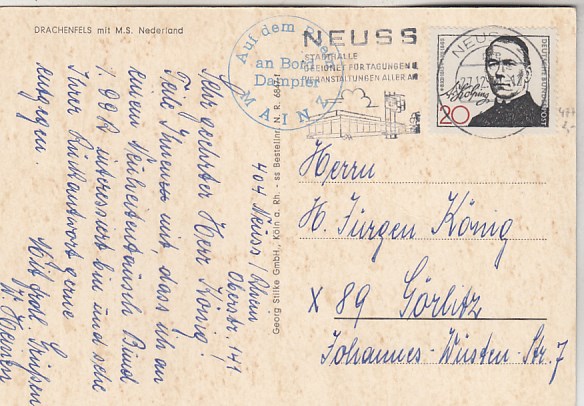 DRACHENFELS mit M.S. Nederland
404 Neuss/Rhein
Oberstr. 141
Sehr geehrter Herr König!
Teile Ihnen mit, dass ich an
einem Neuheitentausch Bund
/. DDR interessiert bin und sehe
Ihrer Rückantwort gerne
entgegen.
Mit frdl. Grüßen
Georg Stilke GmbH., Köln a. Rh. - ss Bestellnr. N. R. 6847-1
Auf dem Rhein
an Bord
Dampfer
MAINZ
NEUSS
STADTHALLE
GEEIGNET FÜR TAGUNGEN U.
VERANSTALTUNGEN ALLER ART
NEUSS
DEUTSCHE BUNDESPOST
20
Herrn
H. Jürgen König
X 89 Görlitz
Johannes-Wüsten-Str. 7